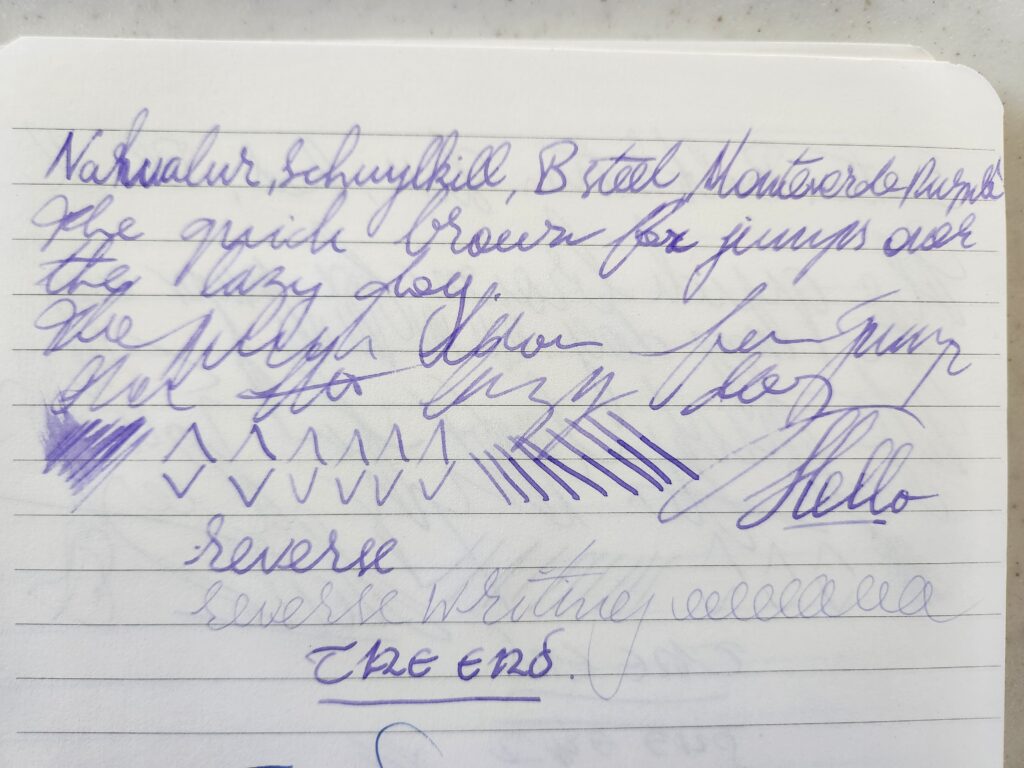 Nahvalur, Schuylkill, B steel, Monteverde Purple
The quick brown fox jumps over
the lazy dog.
The jump
the lazy dog
Hello
reverse
reverse writing
THE END.